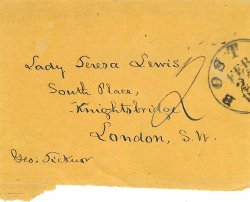 Lady Teresa Lewis,
South Place,
Knightsbridge
London, S.W.
Geo: Ticknor
2
BOST
FEB